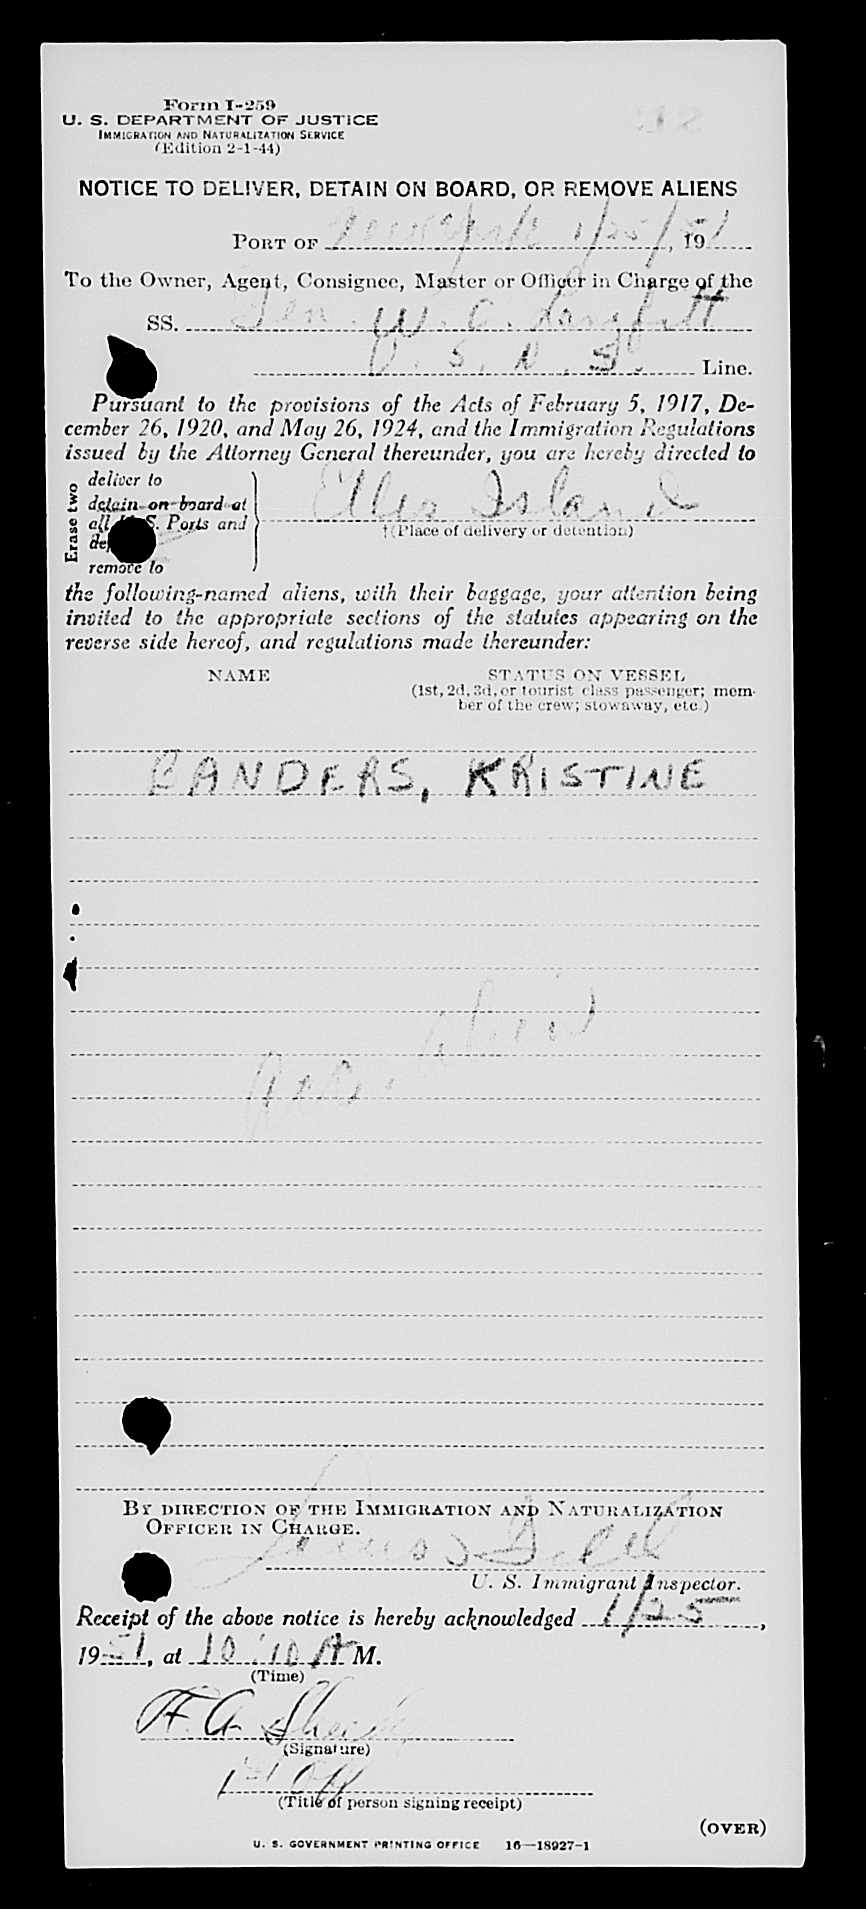 Form I-259
U. S. DEPARTMENT OF JUSTICE
IMMIGRATION AND NATURALIZATION SERVICE
(Edition 2-1-44)
NOTICE TO DELIVER, DETAIN ON BOARD, OR REMOVE ALIENS
PORT OF New York 1/25/51, 19
To the Owner, Agent, Consignee, Master or Officer in Charge of the
SS. Gen. W. C. Langfitt
U. S. N. S. Line.
Pursuant to the provisions of the Acts of February 5, 1917, De-
cember 26, 1920, and May 26, 1924, and the Immigration Regulations
issued by the Attorney General thereunder, you are hereby directed to
Erase two
deliver to
detain on board at
all U. S. Ports and
remove to
Ellis Island
†(Place of delivery or detention)
the following-named aliens, with their baggage, your attention being
invited to the appropriate sections of the statutes appearing on the
reverse side hereof, and regulations made thereunder:
NAME STATUS ON VESSEL
(1st, 2d, 3d, or tourist class passenger; mem-
ber of the crew; stowaway, etc.)
BANDERS, KRISTINE
BY DIRECTION OF THE IMMIGRATION AND NATURALIZATION
OFFICER IN CHARGE.
U. S. Immigrant Inspector.
Receipt of the above notice is hereby acknowledged 1/25,
1951, at 10:10 A M.
(Time)
(Signature)
1st Off
(Title of person signing receipt)
(OVER)
U. S. GOVERNMENT PRINTING OFFICE 16—18927-1